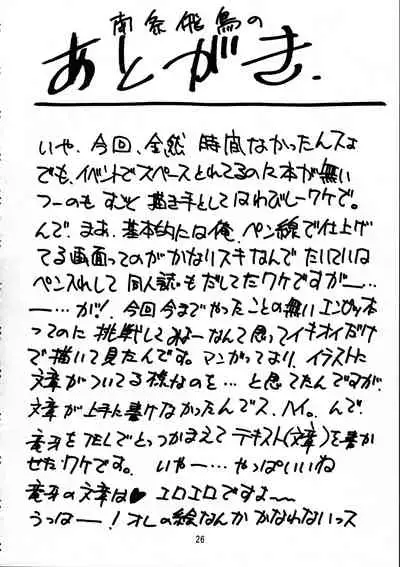 南条飛鳥の
あとがき.
いや、今回、全然 時間なかったんスよ
でも、イベントでスペースとれてるのに本が無い
つーのも ちょっと 描き手としてはわびしーワケで。
んで、まあ、基本的には俺、ペン線で仕上げ
てる画面ってのが かなりスキなんで たいていは
ペン入れして 同人誌も だしてたワケですがー…
ー…が!、今回今までやったことの無いエンピツ本
ってのに 挑戦してみよーなんて思ってイキオイだけ
で描いて見たんです。マンガってより、イラストに
文章がついてる様なのを…と思てたんですが、
文章が上手に書けなかったんでス、ハイ。んで、
竜牙をTELでとっつかまえて テキスト(文章)を書か
せたワケです。 いやー…やっぱいいね
竜牙の文章は♥ エロエロですよ〜
うっはー! オレの絵なんか かなわないっス
26